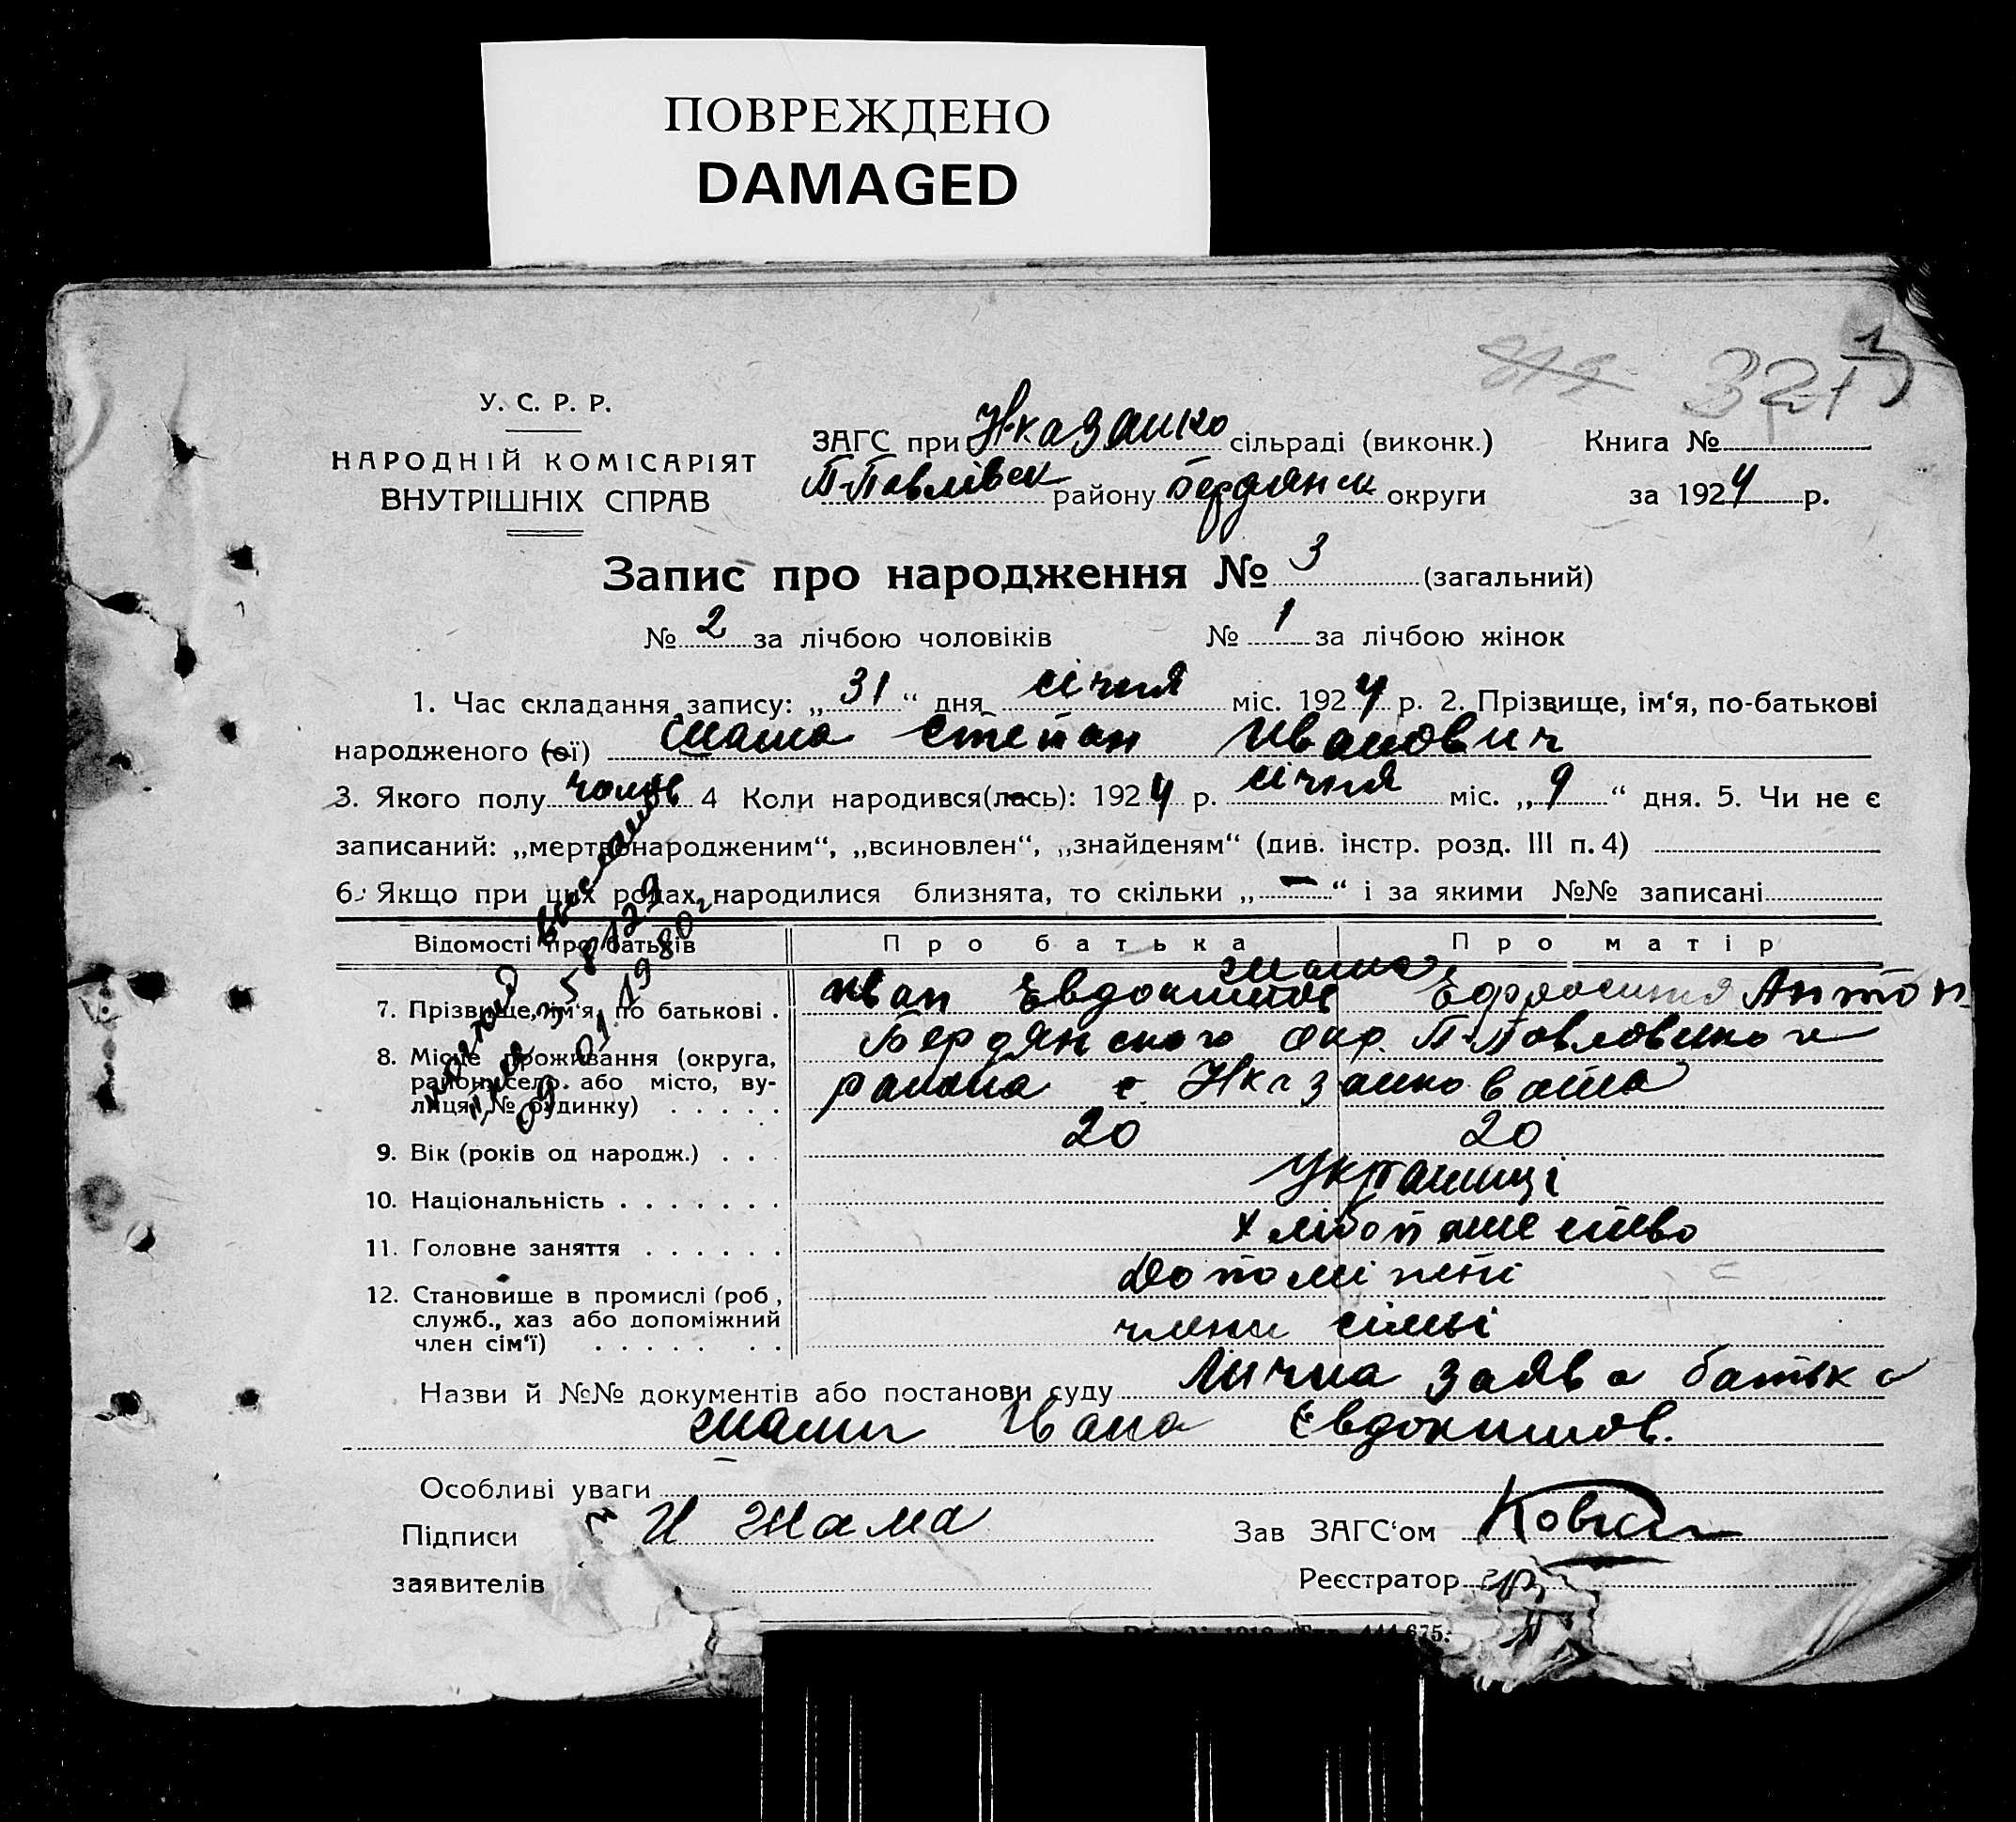 ПОВРЕЖДЕНО
DAMAGED
У. С. Р. Р.
НАРОДНІЙ КОМІСАРІЯТ
ВНУТРІШНІХ СПРАВ
ЗАГС при сільраді (виконк.)
П-Павлівск району Бердянск округи
Книга №
за 1924 р.
819 321
Запис про народження № 3 (загальний)
№ 2 за лічбою чоловіків № 1 за лічбою жінок
1. Час складання запису: „31“ дня січня міс. 1924 р. 2. Прізвище, ім‘я, по-батькові
народженого (ої) Жама Степан Иванович
3. Якого полу чолов 4 Коли народився(лась): 1924 р. січня міс. „9“ дня. 5. Чи не є
записаний: „мертвонародженим“, „всиновлен“, „знайденям“ (див. інстр. розд. III п. 4)
6. Якщо при цих родах народилися близнята, то скільки „—“ і за якими №№ записані
Відомості про батьків Про батька Про матір
7. Прізвище, ім‘я, по батькові . Иван Евдокимов Жама Ефросиния Антон
8. Місце проживання (округа, Бердянского окр. П-Павловского
район, село або місто, ву- района с.
лиця, № будинку) . . . . .
9. Вік (років од народж.) . . . 20 20
10. Національність . . . . . . . Українці
11. Головне заняття . . . . . . Хлібопашество
12. Становище в промислі (роб., Допоміжні
служб., хаз або допоміжний
член сім‘ї) . . . . . . . члени сімьі
09 01 1980г
Назви й №№ документів або постанови суду Лична заява батька
Жами Івана Євдокимов.
Особливі уваги
Підписи И Жама Зав ЗАГС‘ом
заявителів Реєстратор
444 675.